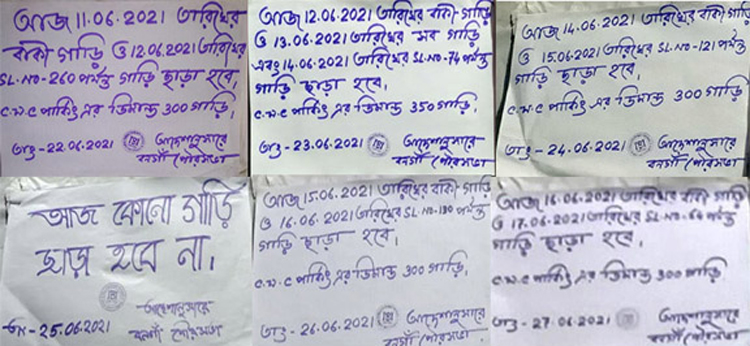 আজ 11.06.2021 তারিখের
বাকী গাড়ি ও 12.06.2021 তারিখের
SL.NO-260 পর্যন্ত গাড়ি ছাড়া হবে,
C.W.C পার্কিং এর ডিমান্ড 300 গাড়ি,
তাং-22.06.2021 আদেশানুসারে
বনগাঁ পৌরসভা
আজ 12.06.2021 তারিখের বাকী গাড়ি
ও 13.06.2021 তারিখের সব গাড়ি
এবং 14.06.2021 তারিখের SL.NO-74 পর্যন্ত
গাড়ি ছাড়া হবে,
C.W.C পার্কিং এর ডিমান্ড 350 গাড়ি,
তাং-23.06.2021 আদেশানুসারে
বনগাঁ পৌরসভা
আজ 14.06.2021 তারিখের বাকী গাড়ি
ও 15.06.2021 তারিখের SL.NO-121 পর্যন্ত
গাড়ি ছাড়া হবে,
C.W.C পার্কিং এর ডিমান্ড 300 গাড়ি,
তাং-24.06.2021 আদেশানুসারে
বনগাঁ পৌরসভা
আজ কোনো গাড়ি
ছাড়া হবে না,
তাং-25.06.2021 আদেশানুসারে
বনগাঁ পৌরসভা
আজ 15.06.2021 তারিখের বাকী গাড়ি
ও 16.06.2021 তারিখের SL.NO-130 পর্যন্ত
গাড়ি ছাড়া হবে,
C.W.C পার্কিং এর ডিমান্ড 300 গাড়ি,
তাং-26.06.2021 আদেশানুসারে
বনগাঁ পৌরসভা
আজ 16.06.2021 তারিখের বাকী গাড়ি
ও 17.06.2021 তারিখের SL.NO-64 পর্যন্ত
গাড়ি ছাড়া হবে,
C.W.C পার্কিং এর ডিমান্ড 300 গাড়ি,
তাং-27.06.2021 আদেশানুসারে
বনগাঁ পৌরসভা